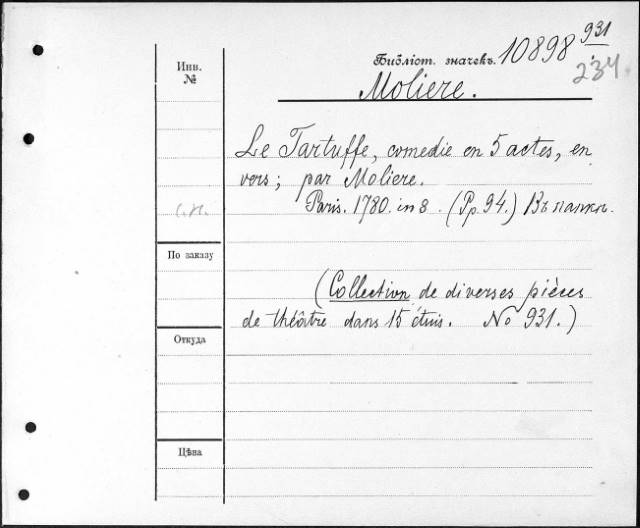 Инв.
№
Библіот. значекъ. 10898 931
234
Moliere.
Le Tartuffe, comedie en 5 actes, en
vers; par Moliere.
Paris. 1780. in 8. (Pp. 94.) Въ папкѣ.
По заказу
(Collection de diverses pièces
de théâtre dans 15 étuis. No 931.)
Откуда
Цѣна